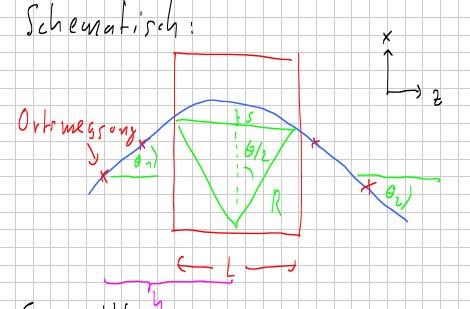 Schematisch:
x
z
Ortsmessung
s
θ₁
θ/2
R
θ₂
L
h